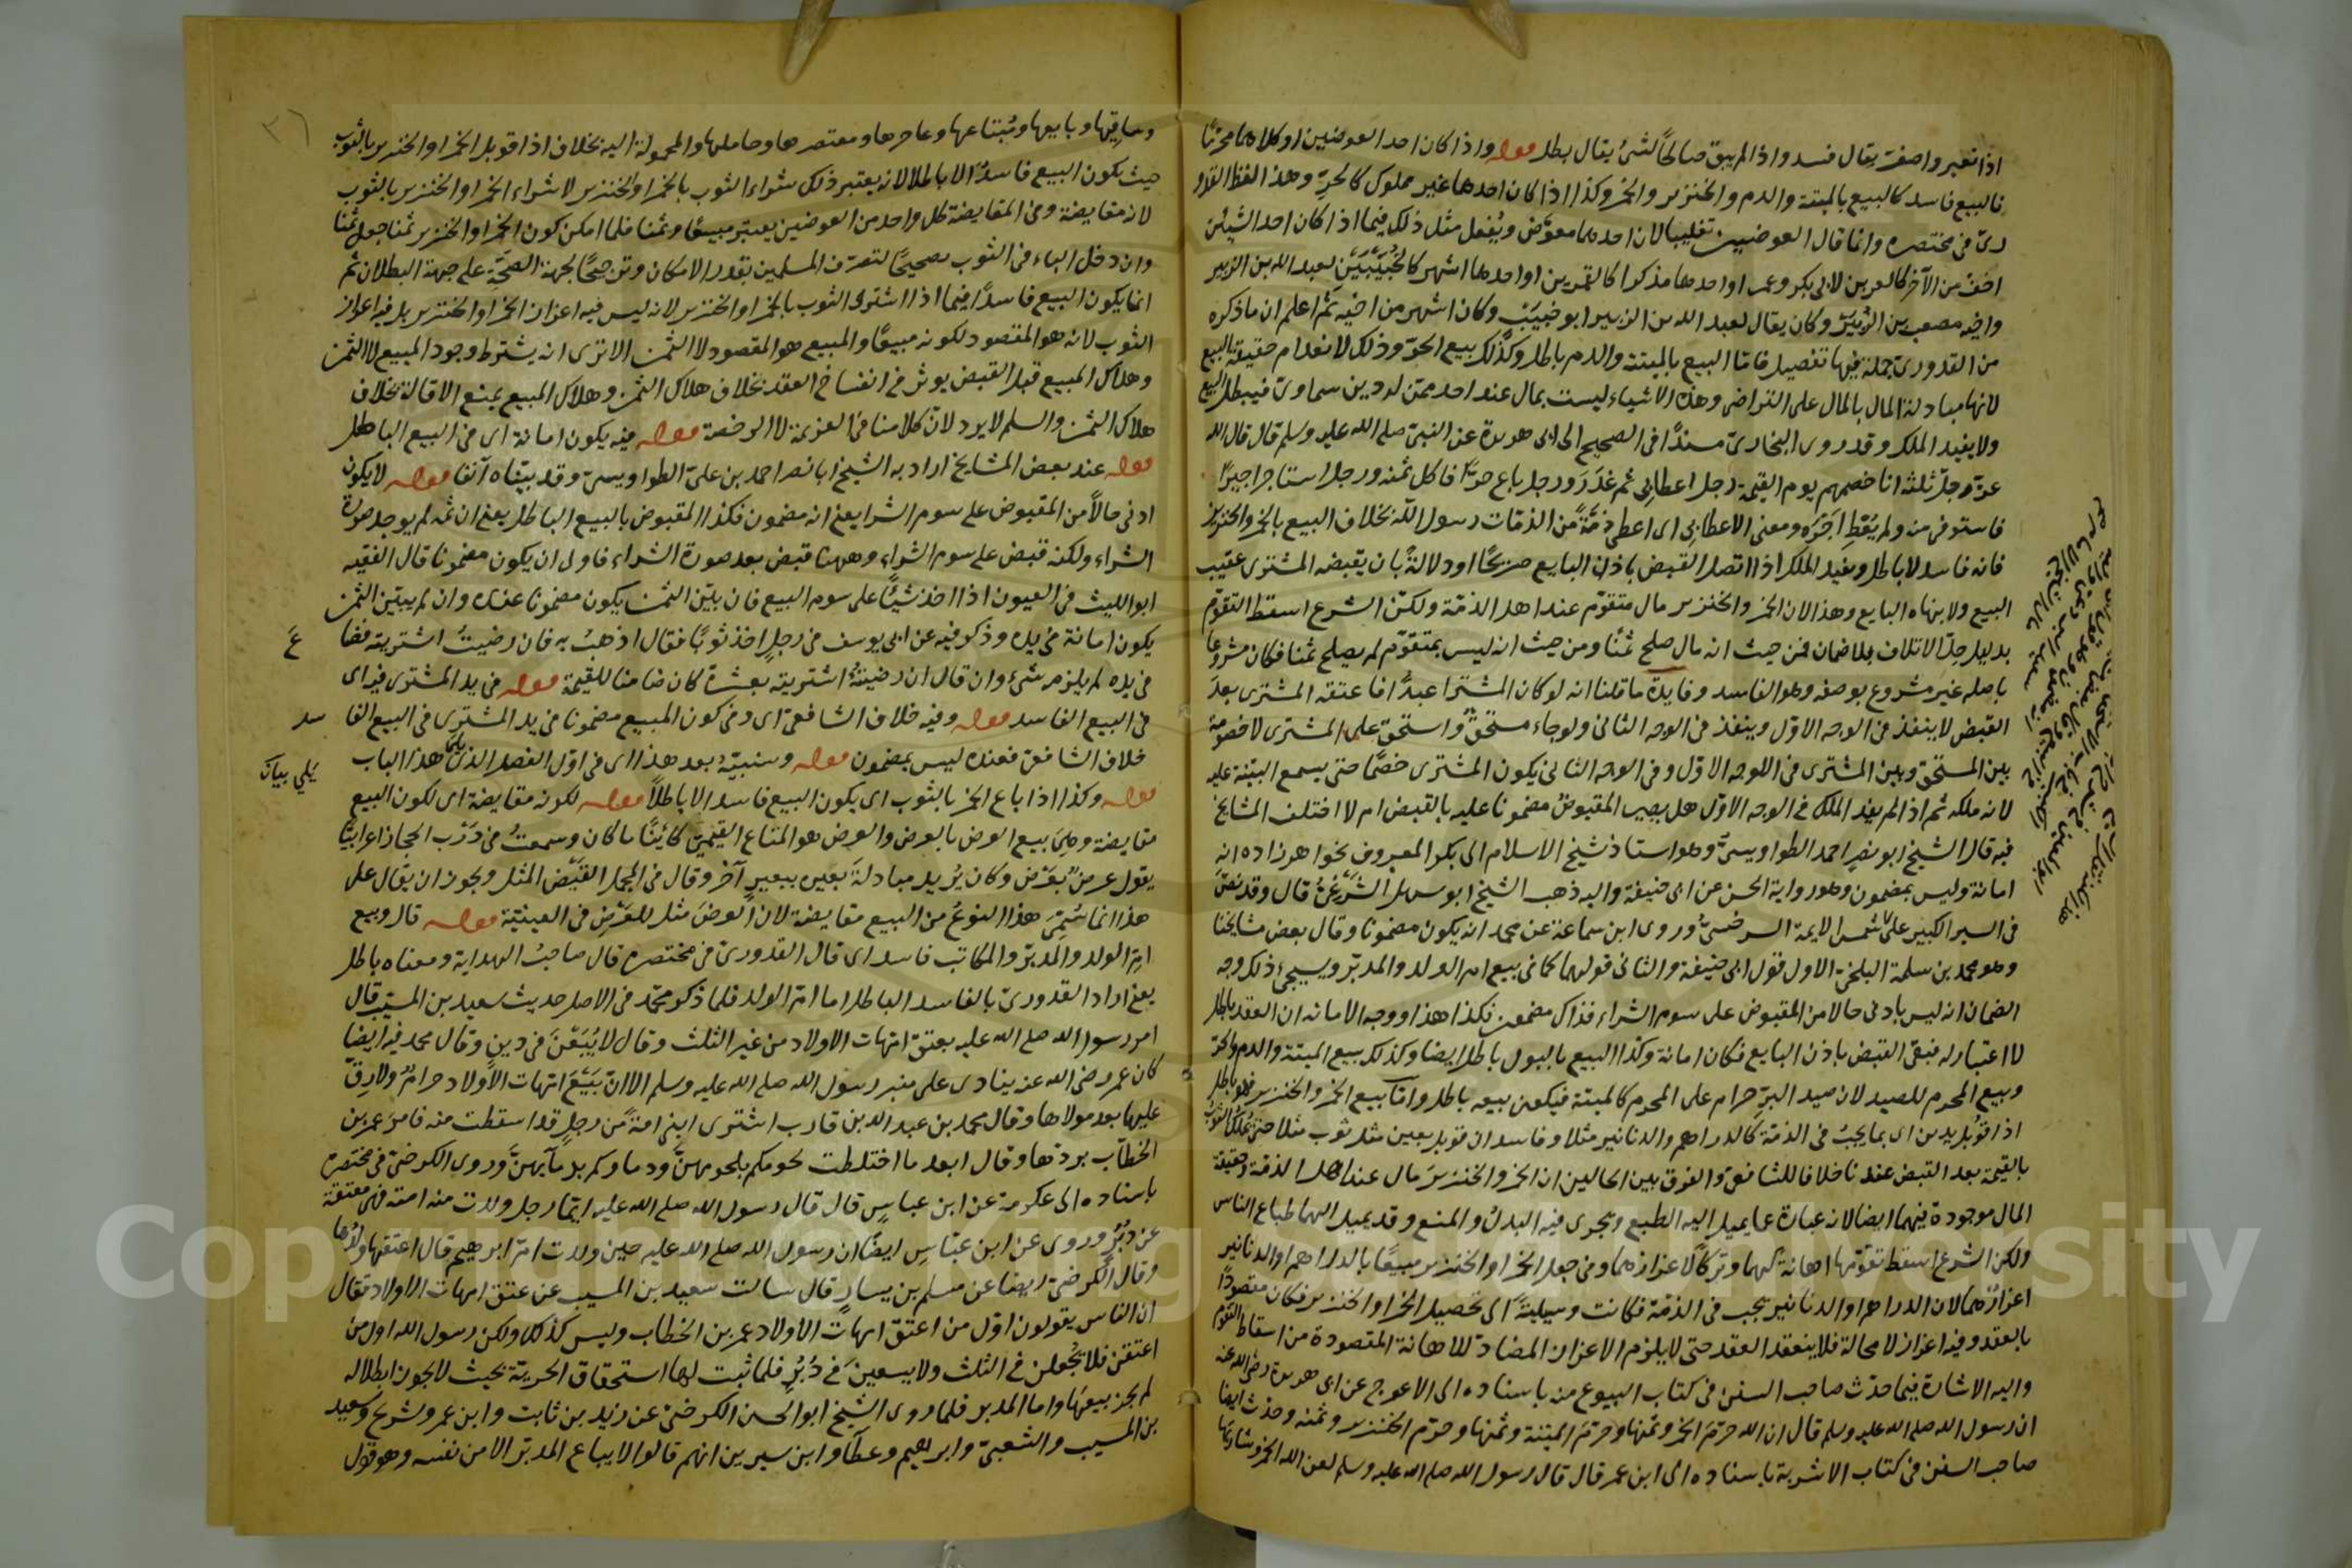 اذا تغير واصفر يقال فسد واذا لم يبق صالحًا لشئ يقال بطل قوله واذا كان احد العوضين او كلاهما محرمًا
فالبيع فاسد كالبيع بالميتة والدم والخنزير والخمر وكذا اذا كان احدهما غير مملوك كالحرّ وهذا لفظ القدو
ريّ في مختصره وانما قال العوضين تغليبا لان احدهما معوَّض ويُفعل مثل ذلك فيما اذا كان احد الشيئين
اخفّ من الآخر كالعمرين لابي بكر وعمر او احدهما مذكرا كالقمرين او احدهما اشهر كالخُبَيْبَيْن لعبد الله بن الزبير
واخيه مصعب بن الزبير وكان يقال لعبد الله بن الزبير ابو خبيب وكان اشهر من اخيه ثم اعلم ان ما ذكره
من القدوري جملة فيها تفصيل فامّا البيع بالميتة والدم باطل وكذلك بيع الحرّ وذلك لانعدام حقيقة البيع
لانها مبادلة المال بالمال على التراضي وهذه الاشياء ليست بمال عند احد ممّن له دين سماوي فيبطل البيع
ولا يفيد الملك وقد روى البخاريّ مسندًا في الصحيح الى ابي هريرة عن النبيّ صلى الله عليه وسلم قال قال الله
عزّ وجلّ ثلثة انا خصمهم يوم القيمة رجل اعطا بي ثم غدر ورجل باع حرًّا فاكل ثمنه ورجل استاجر اجيرًا
فاستوفى منه ولم يُعْطِ اجره ومعنى الاعطا بي اى اعطى ذمّةً من الذمّات رسول الله بخلاف البيع بالخمر والخنزير
فانه فاسد لا باطل ويفيد الملك اذا اتصل القبض باذن البايع صريحًا او دلالةً بان يقبضه المشترى عقيب
البيع ولا ينهاه البايع وهذا لان الخمر والخنزير مال متقوّم عند اهل الذمّة ولكنّ الشرع اسقط التقوّم
بدليل حِلّ الاتلاف بلا ضمان فمن حيث انه مال صلح ثمنًا ومن حيث انه ليس بمتقوّم لم يصلح ثمنا فكان مشروعا
باصله غير مشروع بوصفه وهو الفاسد وفايدة ما قلنا انه لو كان المشترا عبدًا فاعتقه المشترى بعد
القبض لا ينفذ في الوجه الاوّل وينفذ في الوجه الثاني ولو جاء مستحقّ واستحق على المشترى لا خصومة
بين المستحق وبين المشترى في الوجه الاوّل وفي الوجه الثاني يكون المشترى خصمًا حتى يسمع البيّنة عليه
لانه ملكه ثم اذا لم يفد الملك في الوجه الاوّل هل يصير المقبوض مضمونا عليه بالقبض ام لا اختلف المشايخ
فيه قال الشيخ ابو نصر احمد الطواويسيّ وهو استاذ شيخ الاسلام ابى بكر المعروف بخواهرزاده انه
امانة وليس بمضمون وهو رواية الحسن عن ابى حنيفة واليه ذهب الشيخ ابو سهل الشرغى قال وقد نصّ
في السير الكبير على شمس الايمة السرخسيّ وروى ابن سماعة عن محمد انه يكون مضمونا وقال بعض مشايخنا
وهو محمد بن سلمة البلخيّ الاول قول ابى حنيفة والثانى قولهما كما في بيع ام الولد والمدبّر ويسجيئ ذلك وجه
الضمان انه ليس بادنى حالا من المقبوض على سوم الشراء فذاك مضمون فكذا هذا ووجه الامانة ان العقد باطل
لا اعتبار له فبقى القبض باذن البايع فكان امانة وكذا البيع بالبول باطل ايضا وكذلك بيع الميتة والدم والحرّ
وبيع المحرم للصيد لان صيد البرّ حرام على المحرم كالميتة فيكون بيعه باطل وامّا بيع الخمر والخنزير فهو باطل
اذا قوبل بدين اى بما يجبُ في الذمّة كالدراهم والدنانير مثلا وفاسد ان قوبل بعين مثل ثوب مثلا حتى يُملك الثوب
بالقيمة بعد القبض عندنا خلافا للشافعيّ والفرق بين الحالين ان الخمر والخنزير مال عند اهل الذمّة وحقيقة
المال موجودة فيهما ايضا لانه عبارة عما يميل اليه الطبع ويجرى فيه البدل والمنع وقد يميل اليهما طباع الناس
ولكن الشرع اسقط تقوّمها اهانة لهما وتركًا لاعزازهما وفي جعل الخمر او الخنزير مبيعًا بالدراهم او الدنانير
اعزازٌ لهما لان الدراهم او الدنانير يجب في الذمّة فكانت وسيلةً الى تحصيل الخمر او الخنزير فكان مقصودًا
بالعقد وفيه اعزاز لا محالة فلا ينعقد العقد حتى لا يلزم الاعزاز المضادّ للاهانة المقصودة من اسقاط التقوّم
واليه الاشارة فيما حدّث صاحب السنن في كتاب البيوع منه باسناده الى الاعرج عن ابى هريرة رضى الله عنه
ان رسول الله صلى الله عليه وسلم قال ان الله حرّم الخمر وثمنها وحرّم الميتة وثمنها وحرّم الخنزير وثمنه وحدّث ايضا
صاحب السنن في كتاب الاشربة باسناده الى ابن عمر قال قال رسول الله صلى الله عليه وسلم لعن الله الخمر وشاربها
وساقيها وبايعها ومُبتاعها وعاصرها ومعتصرها وحاملها والمحمولة اليه بخلاف اذا قوبل الخمر او الخنزير بالثوب
حيث يكون البيع فاسدًا لا باطلا لانه يعتبر ذلك شراء الثوب بالخمر او الخنزير لا شراء الخمر او الخنزير بالثوب
لانه مقايضة وفي المقايضة كل واحد من العوضين يعتبر مبيعًا وثمنا فلما امكن كون الخمر او الخنزير ثمنا جعل ثمنا
وان دخل الباء في الثوب تصحيحًا لتصرّف المسلمين بقدر الامكان وترجيحًا لجهة الصحّة على جهة البطلان ثم
انما يكون البيع فاسدًا فيما اذا اشترى الثوب بالخمر او الخنزير لانه ليس فيه اعزاز الخمر او الخنزير بل فيه اعزاز
الثوب لانه هو المقصود لكونه مبيعًا والمبيع هو المقصود لا الثمن الا ترى انه يشترط وجود المبيع لا الثمن
وهلاك المبيع قبل القبض يوثر في انفساخ العقد بخلاف هلاك الثمن وهلاك المبيع يمنع الاقالة بخلاف
هلاك الثمن والسلم لا يرد لانّ كلامنا في العزيمة لا الرخصة قوله فيه يكون امانة اى في البيع الباطل
قوله عند بعض المشايخ اراد به الشيخ ابا نصر احمد بن علىّ الطواويسىّ وقد بيّناه آنفا قوله لا يكون
ادنى حالاً من المقبوض على سوم الشرا يعنى انه مضمون فكذا المقبوض بالبيع الباطل يعنى ان ثمه لم يوجد صورة
الشراء ولكنه قبض على سوم الشراء وههنا قبض بعد صورة الشراء فاولى ان يكون مضمونا قال الفقيه
ابو الليث في العيون اذا اخذ شيئًا على سوم البيع فان بيّن الثمن يكون مضمونا عنده وان لم يبيّن الثمن
يكون امانة في يده وذكر فيه عن ابى يوسف في رجلٍ اخذ ثوبًا فقال اذهبُ به فان رضيتُ اشتريته فضا
ع
في يده لم يلزمه شئ وان قال ان رضيتهُ اشتريته بعشرة كان ضامنا للقيمة قوله في يد المشترى فيه اى
في البيع الفاسد قوله وفيه خلاف الشافعىّ اى وفي كون المبيع مضمونا في يد المشترى في البيع الفا
سد
خلاف الشافعى فعنده ليس بمضمون قوله وسنبيّنه بعد هذا اى في اوّل الفصل الذى يلى هذا الباب
يلي بيان
قوله وكذا اذا باع الخمر بالثوب اى يكون البيع فاسدا لا باطلاً قوله لكونه مقايضة اى لكون البيع
مقايضة وهى بيع العرض بالعرض والعرض هو المتاع القيمىّ كائنًا ما كان وسمعتُ في دَرْب الحجاز اعرابيًّا
يقول عرضٌ بعَرض وكان يُريد مبادلة بعيره ببعيرٍ آخر وقال في المجمل القَيْض المثل ويجوز ان يقال على
هذا انما سُمّى هذا النوعُ من البيع مقايضة لان العَرض مثل للعَرْض في العينيّة قوله قال وبيع
امّ الولد والمدبّر والمكاتب فاسد اى قال القدورىّ في مختصره قال صاحبُ الهداية ومعناه باطل
يعنى اراد القدورىّ بالفاسد الباطل اما امّ الولد فلما ذكر محمّد في الاصل حديث سعيد بن المسيّب قال
امر رسول الله صلى الله عليه بعتق امّهات الاولاد من غير الثلث وقال لا يُبَعْنَ في دين وقال محمد فيه ايضا
كان عمر رضى الله عنه ينادى على منبر رسول الله صلى الله عليه وسلم الا انّ بيع امّهات الاولاد حرامٌ ولا رِقّ
عليها بعد مولاها وقال محمد بن عبد الله بن قارب اشترى ابى امةً من رجل قد اسقطت منه فامر عمر بن
الخطّاب بردّها وقال ابعد ما اختلطت لحومكم بلحومهنّ ودماوكم بدمآئهنّ وروى الكرخىّ في مختصره
باسناده الى عكرمة عن ابن عباسٍ قال قال رسول الله صلى الله عليه ايّما رجل ولدت منه امته فهى معتقة
عن دُبُرٍ وروى عن ابن عبّاسٍ ايضًا ان رسول الله صلى الله عليه حين ولدت امّ ابرهيم قال اعتقها ولدها
وقال الكرخىّ ايضا عن مسلم بن يسارٍ قال سالت سعيد بن المسيب عن عتق امهات الاولاد فقال
ان الناس يقولون اوّل من اعتق امهات الاولاد عمر بن الخطاب وليس كذلك ولكن رسول الله اول من
اعتقهن فلا يُجعلن في الثلث ولا يبعن في دُبُرٍ فلما ثبت لها استحقاق الحريّة بحيث لا يجوز ابطاله
لم يجز بيعها واما المدبر فلما روى الشيخ ابو الحسن الكرخىّ عن زيد بن ثابت وابن عمر وشريح وسعيد
بن المسيب والشعبىّ وابرهيم وعطآء وابن سيرين انهم قالوا لا يباع المدبّر الا من نفسه وهو قول